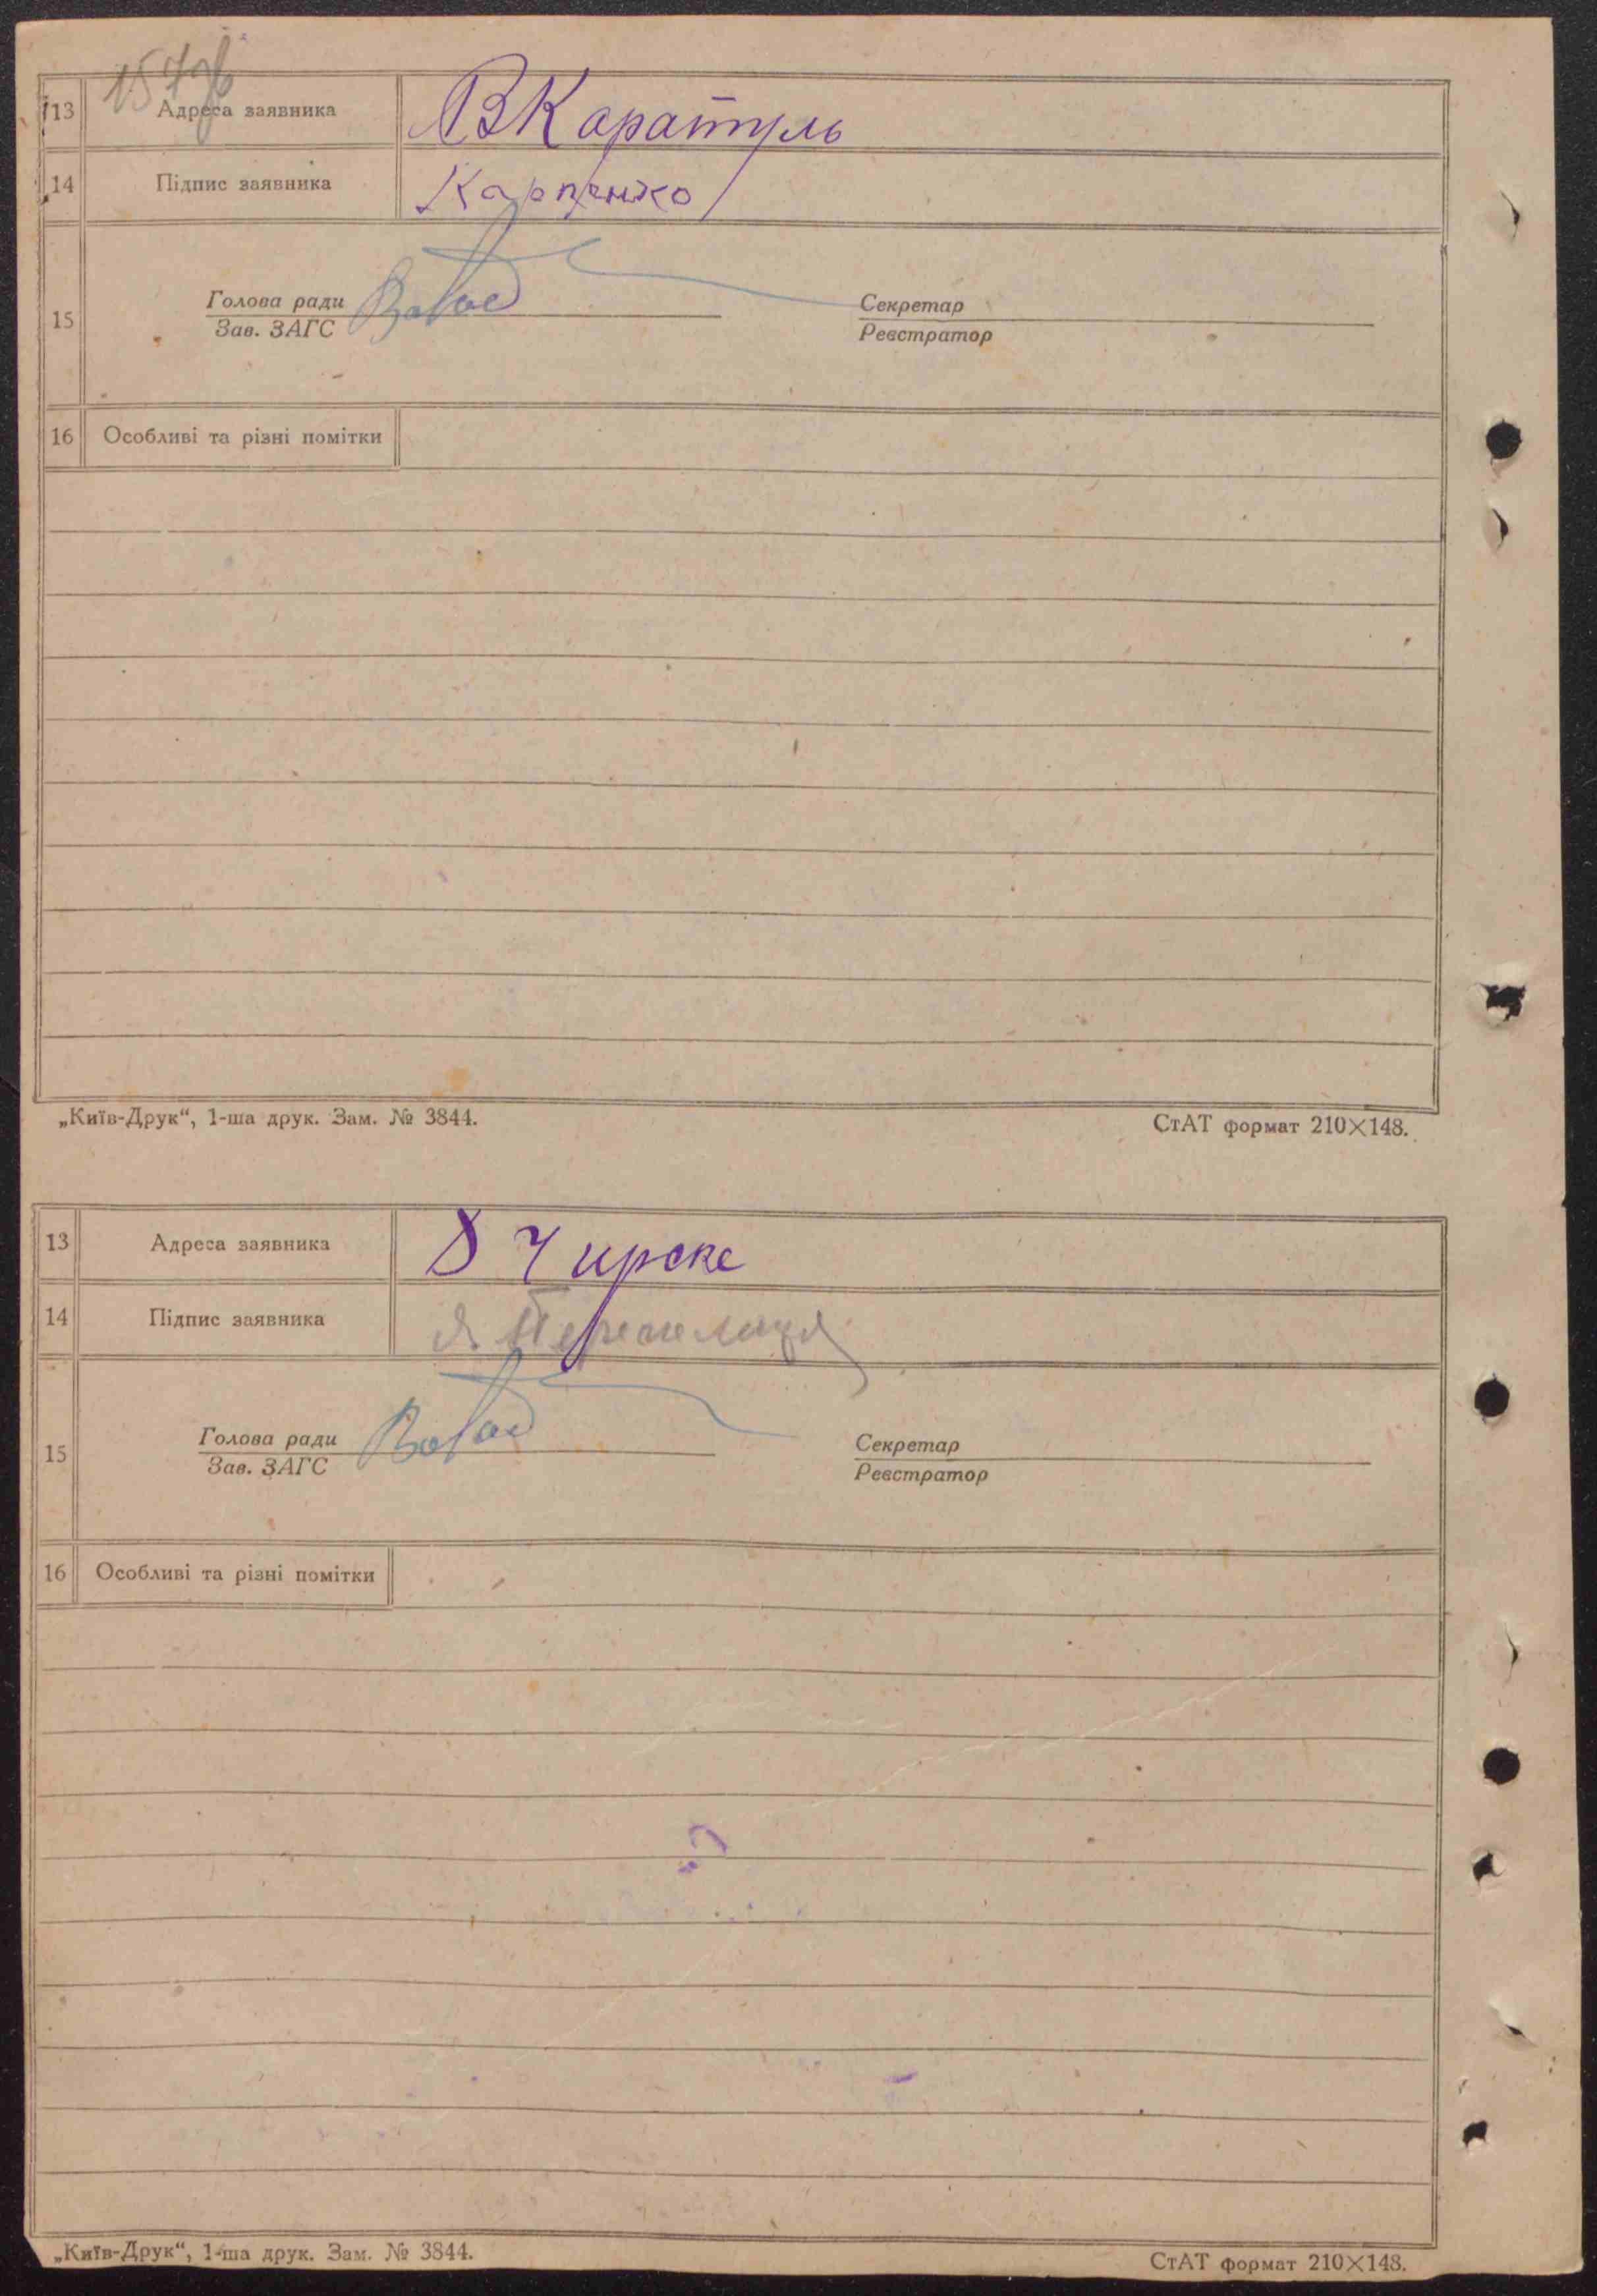 157зв
13 Адреса заявника В Каратуль
14 Підпис заявника Карпенко
15 Голова ради Секретар
Зав. ЗАГС Реєстратор
16 Особливі та різні помітки
„Київ-Друк“, 1-ша друк. Зам. № 3844. СтАТ формат 210×148.
13 Адреса заявника В Чирске
14 Підпис заявника
15 Голова ради Секретар
Зав. ЗАГС Реєстратор
16 Особливі та різні помітки
„Київ-Друк“, 1-ша друк. Зам. № 3844. СтАТ формат 210×148.